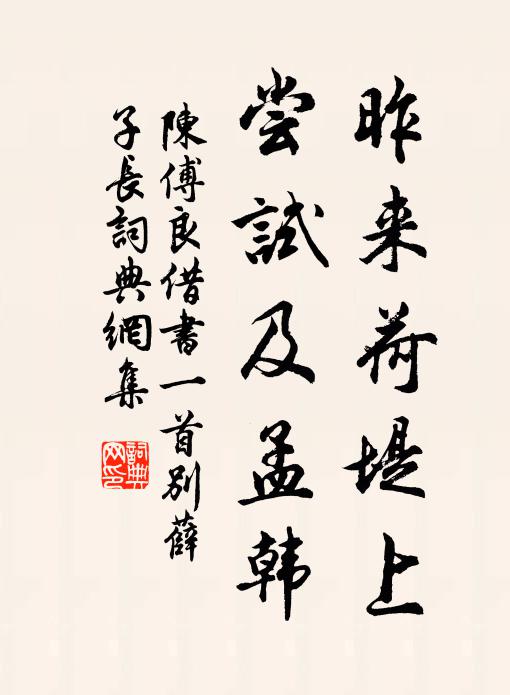 昨来荷堤上
尝試及孟韩
陳傅良借書一首别薛
子長詞典網集
詞典
网印